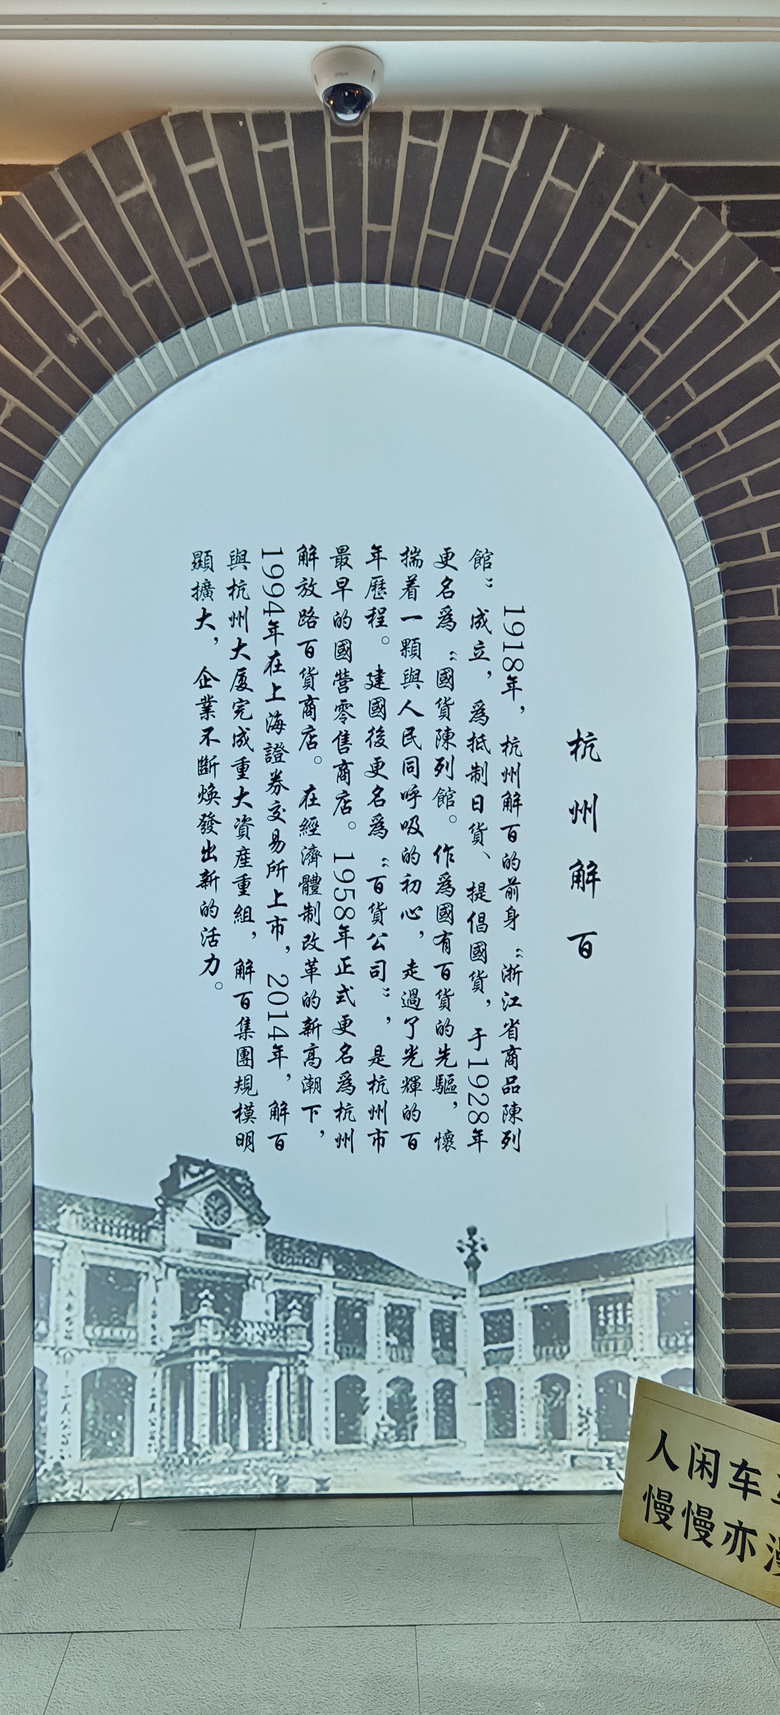 杭州解百
1918年，杭州解百的前身“浙江省商品陳列
館”成立，爲抵制日貨、提倡國貨，于1928年
更名爲“國貨陳列館。作爲國有百貨的先驅，懷
揣着一顆與人民同呼吸的初心，走過了光輝的百
年歷程。建國後更名爲“百貨公司”，是杭州市
最早的國營零售商店。1958年正式更名爲杭州
解放路百貨商店。在經濟體制改革的新高潮下，
1994年在上海證券交易所上市，2014年，解百
與杭州大厦完成重大資産重組，解百集團規模明
顯擴大，企業不斷焕發出新的活力。
人闲车
慢慢亦漫